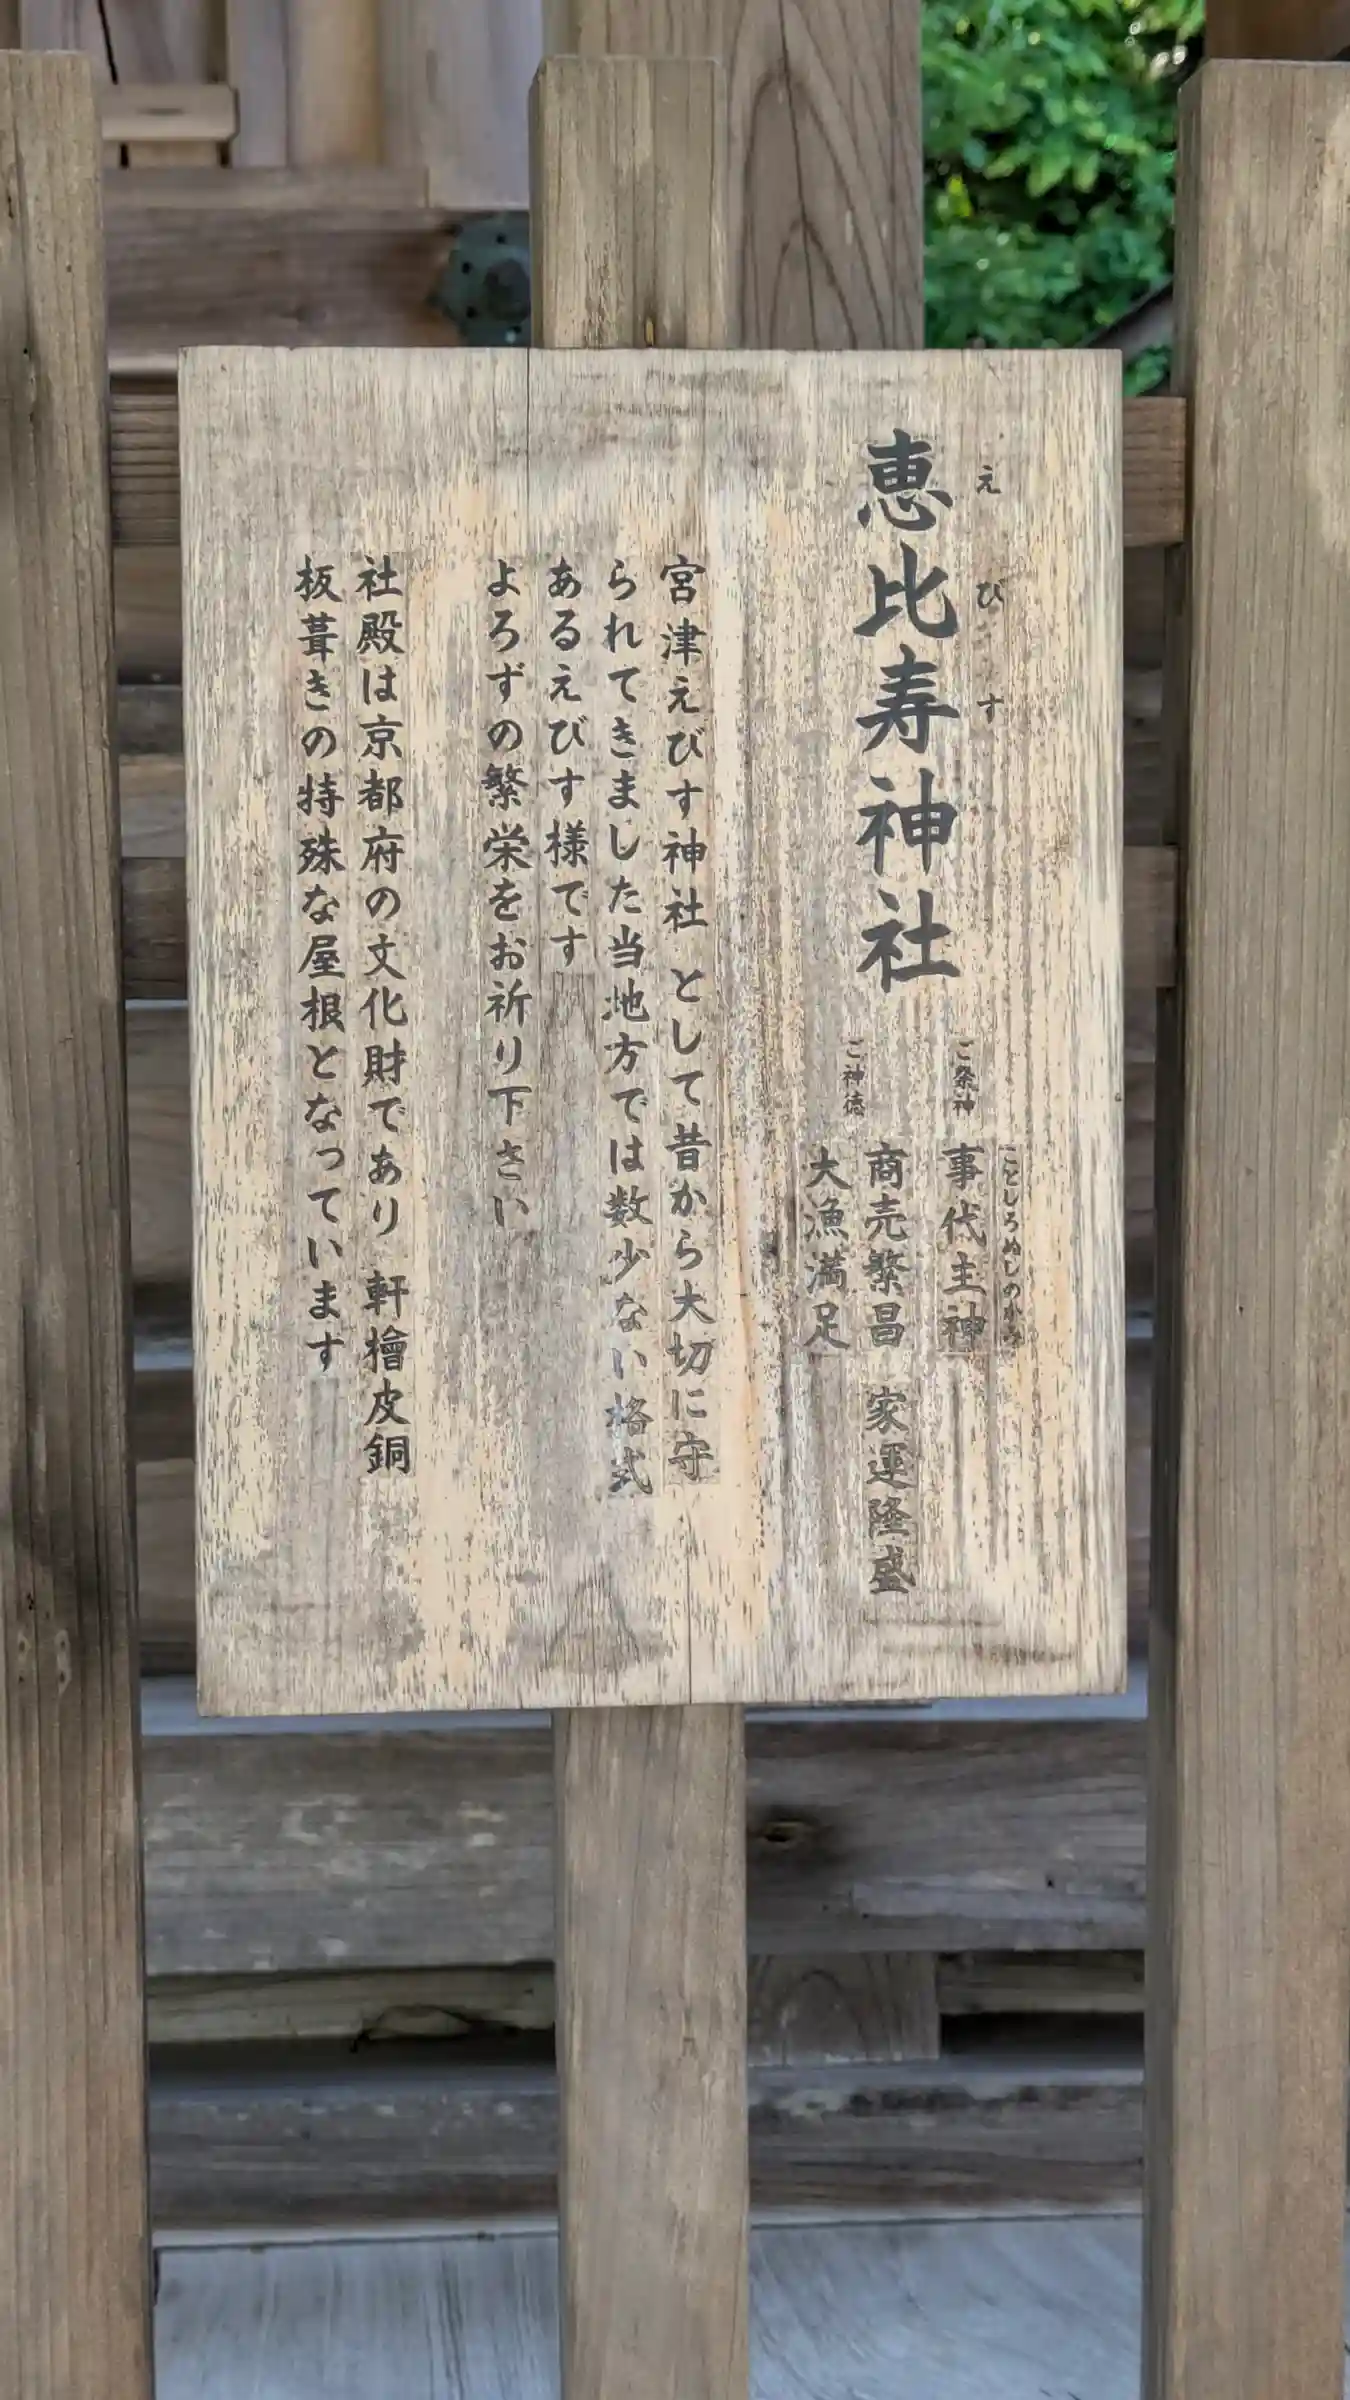 恵比寿神社
えびす
ご祭神
事代主神
ことしろぬしのかみ
ご神徳
商売繁昌 家運隆盛
大漁満足
宮津えびす神社 として昔から大切に守
られてきました当地方では数少ない格式
あるえびす様です
よろずの繁栄をお祈り下さい
社殿は京都府の文化財であり 軒檜皮銅
板葺きの特殊な屋根となっています